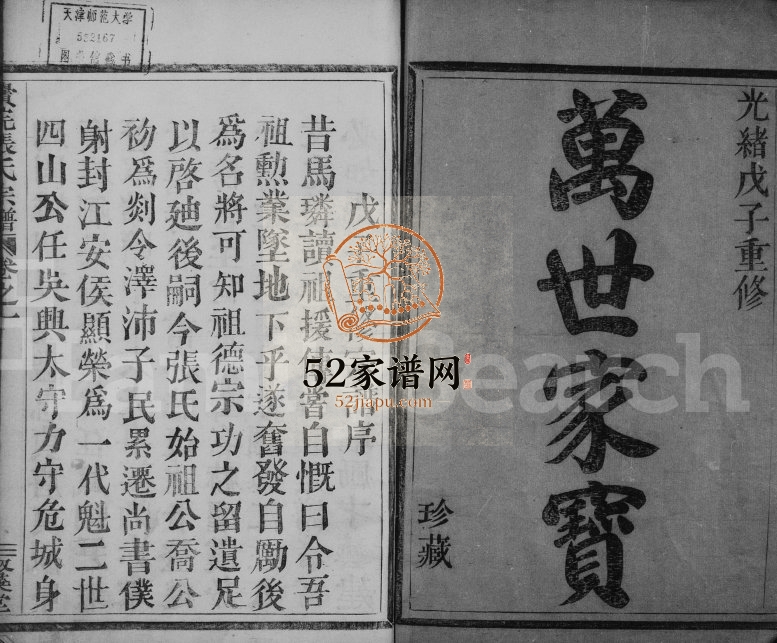 光緒戊子重修
萬世家寶
珍藏
戊 重修 譜序
昔馬璘讀祖援 嘗自慨曰令吾
祖勲業墜地下乎遂奮發自勵後
爲名將可知祖德宗功之留遺足
以啓廸後嗣今張氏始祖公喬公
初爲剡令澤沛子民累遷尚書僕
射封江安侯顯榮爲一代魁二世
四山公任吳興太守力守危城身
張氏宗譜 卷之一
天津师范大学
552167
图书馆藏书
52家谱网
52jiapu.com
Search